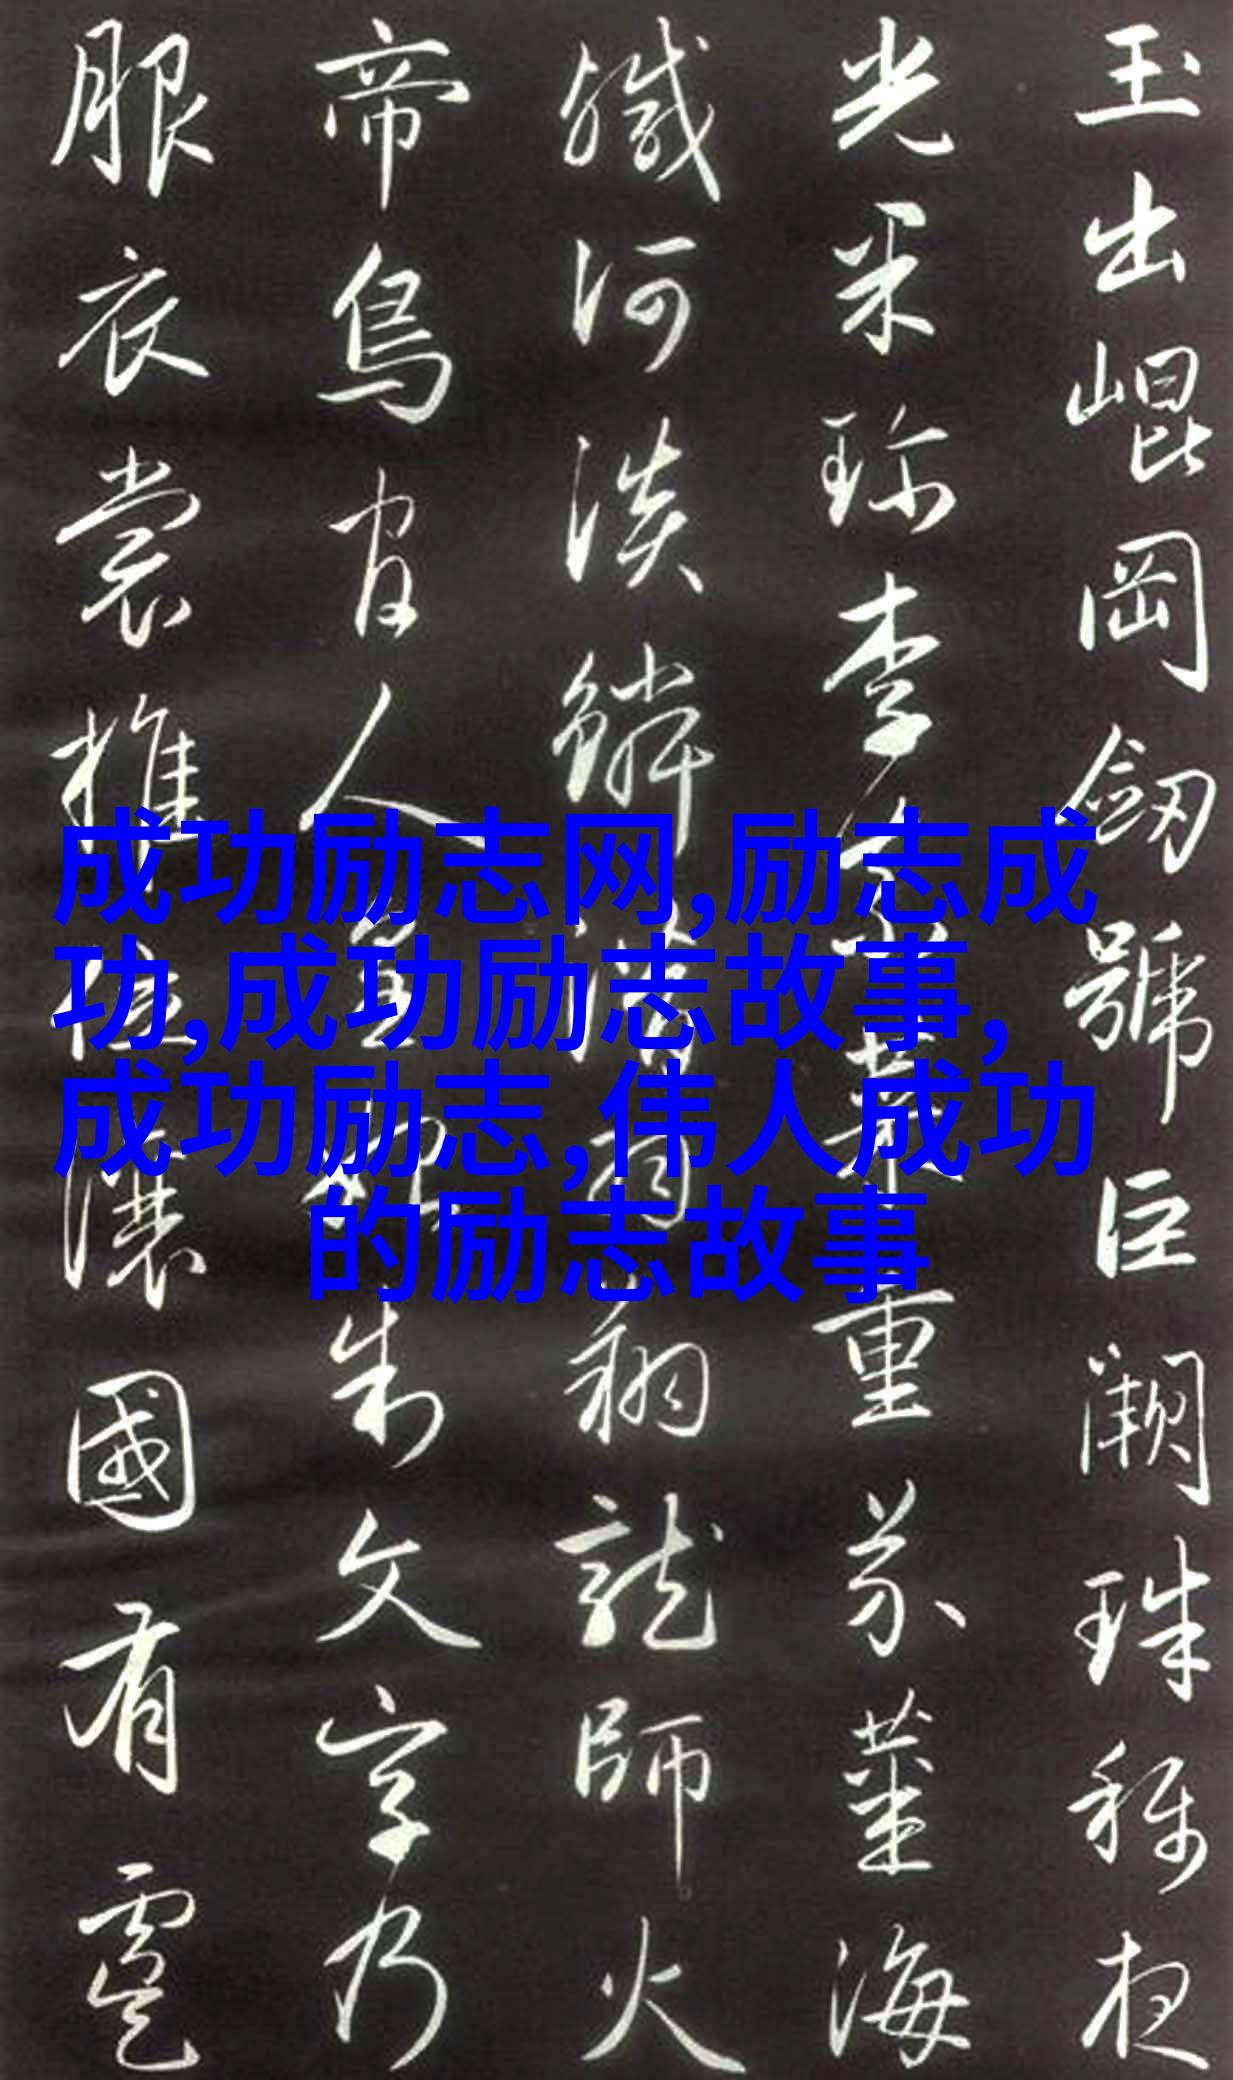 玉出崐岡劒號巨闕珠稱夜
光果珍李柰菜重芥薑海
鹹河淡鱗潛羽翔龍師火
帝鳥官人皇始制文字乃
服衣裳推位讓國有虞
成功励志网,励志成
功,成功励志故事,
成功励志,伟人成功
的励志故事